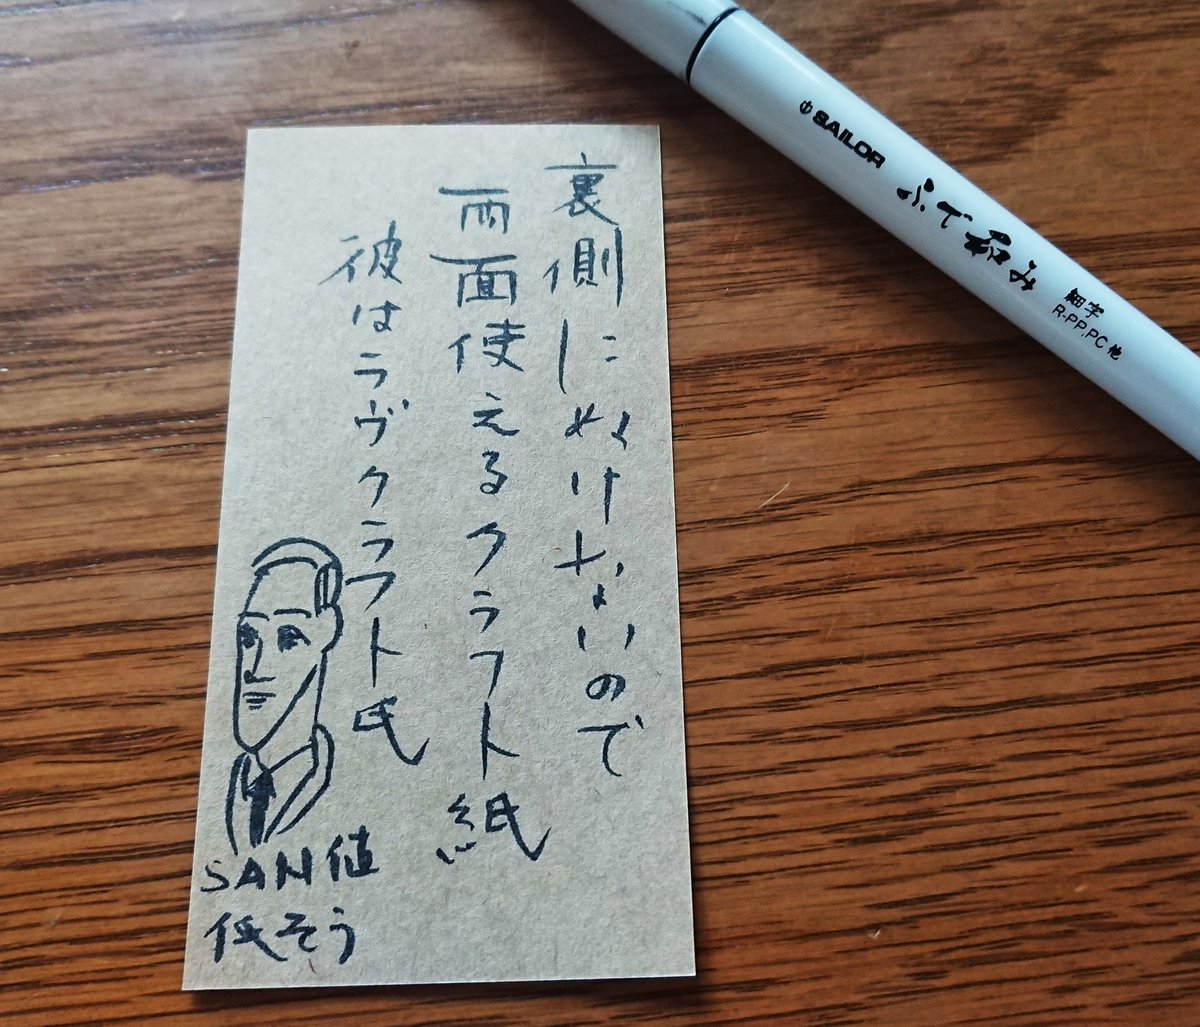 裏側にぬけないので
両面使えるクラフト紙
彼はラヴクラフト氏
SAN値
低そう
SAILOR ふで和み 細字
R-PP,PC他